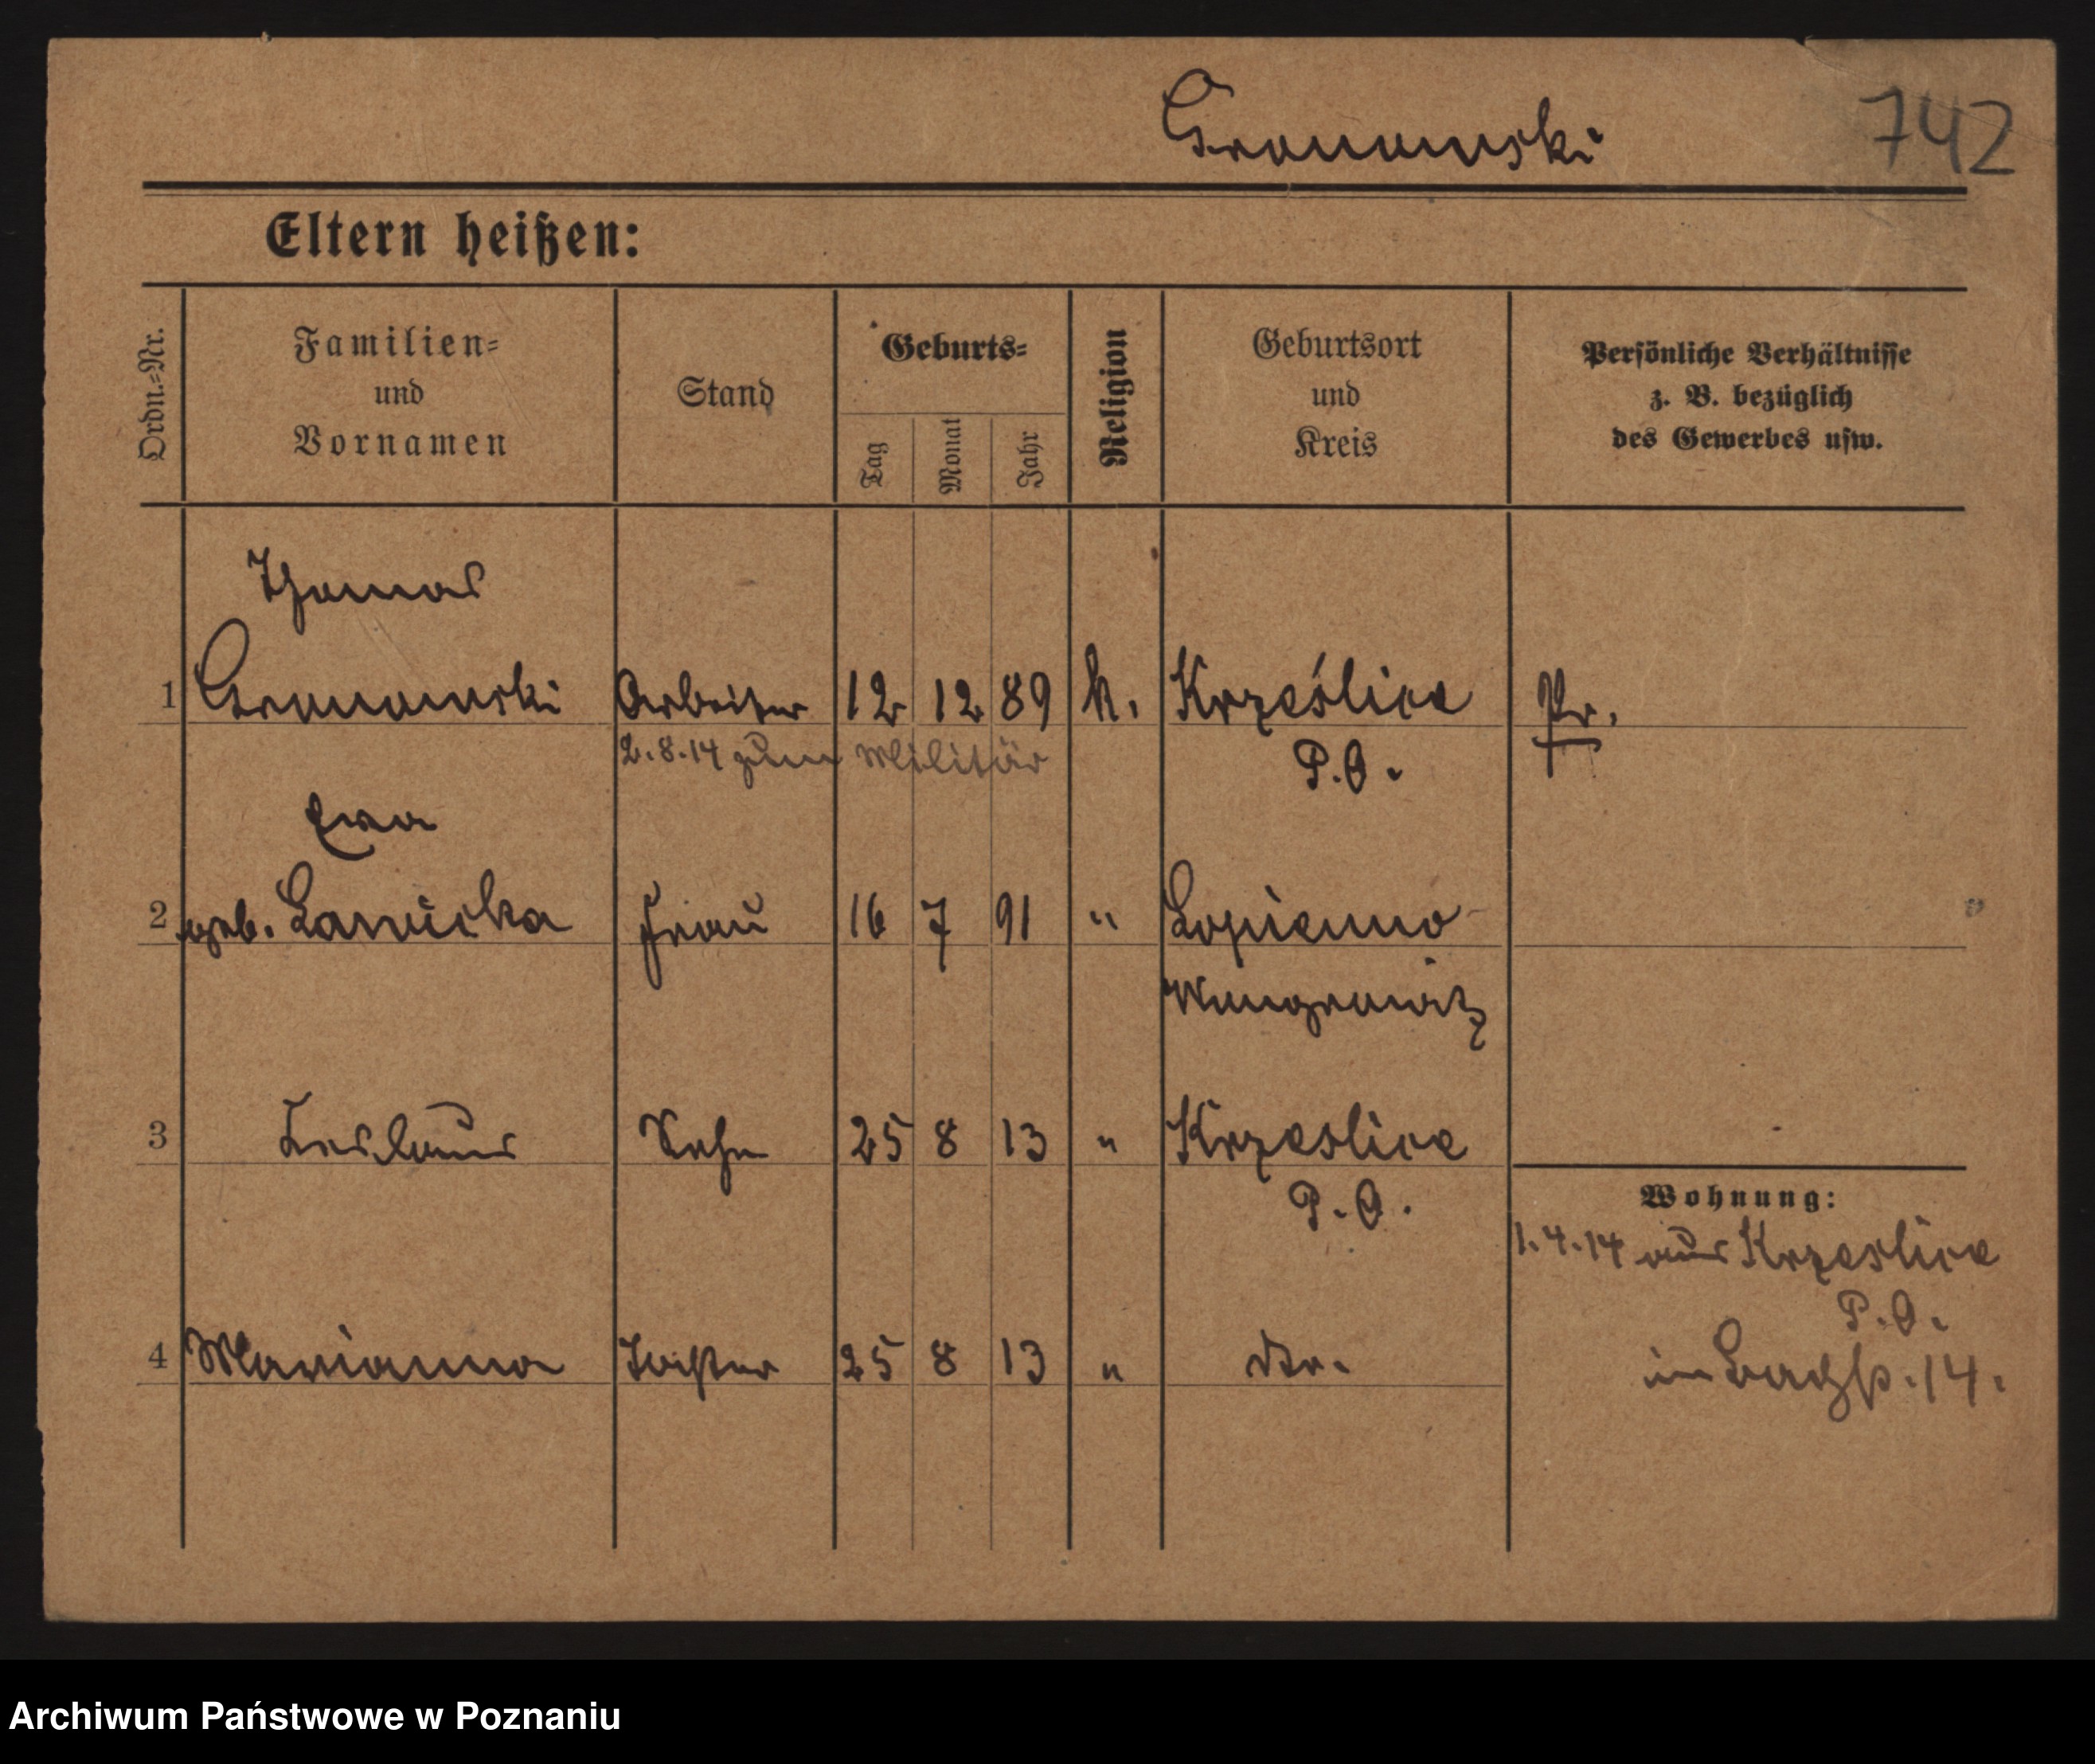 Gronowski 742
Eltern heißen:
Ordn.=Nr. Familien= und Vornamen Stand Geburts= Tag Monat Jahr Religion Geburtsort und Kreis Persönliche Verhältnisse z. B. bezüglich des Gewerbes usw.
Thomas
1 Gronowski Arbeiter 12 12 89 k. Krześlice Pr.
2.8.14 zum Militär P.O.
Ewa
2 geb. Lawicka Frau 16 7 91 " Lopienno
Wongrowitz
3 Sohn 25 8 13 " Krzeslice
P.O.
Wohnung:
1.4.14 aus Krzeslice
P.O.
4 Marianna Tochter 25 8 13 " dto.
in 14.
Archiwum Państwowe w Poznaniu